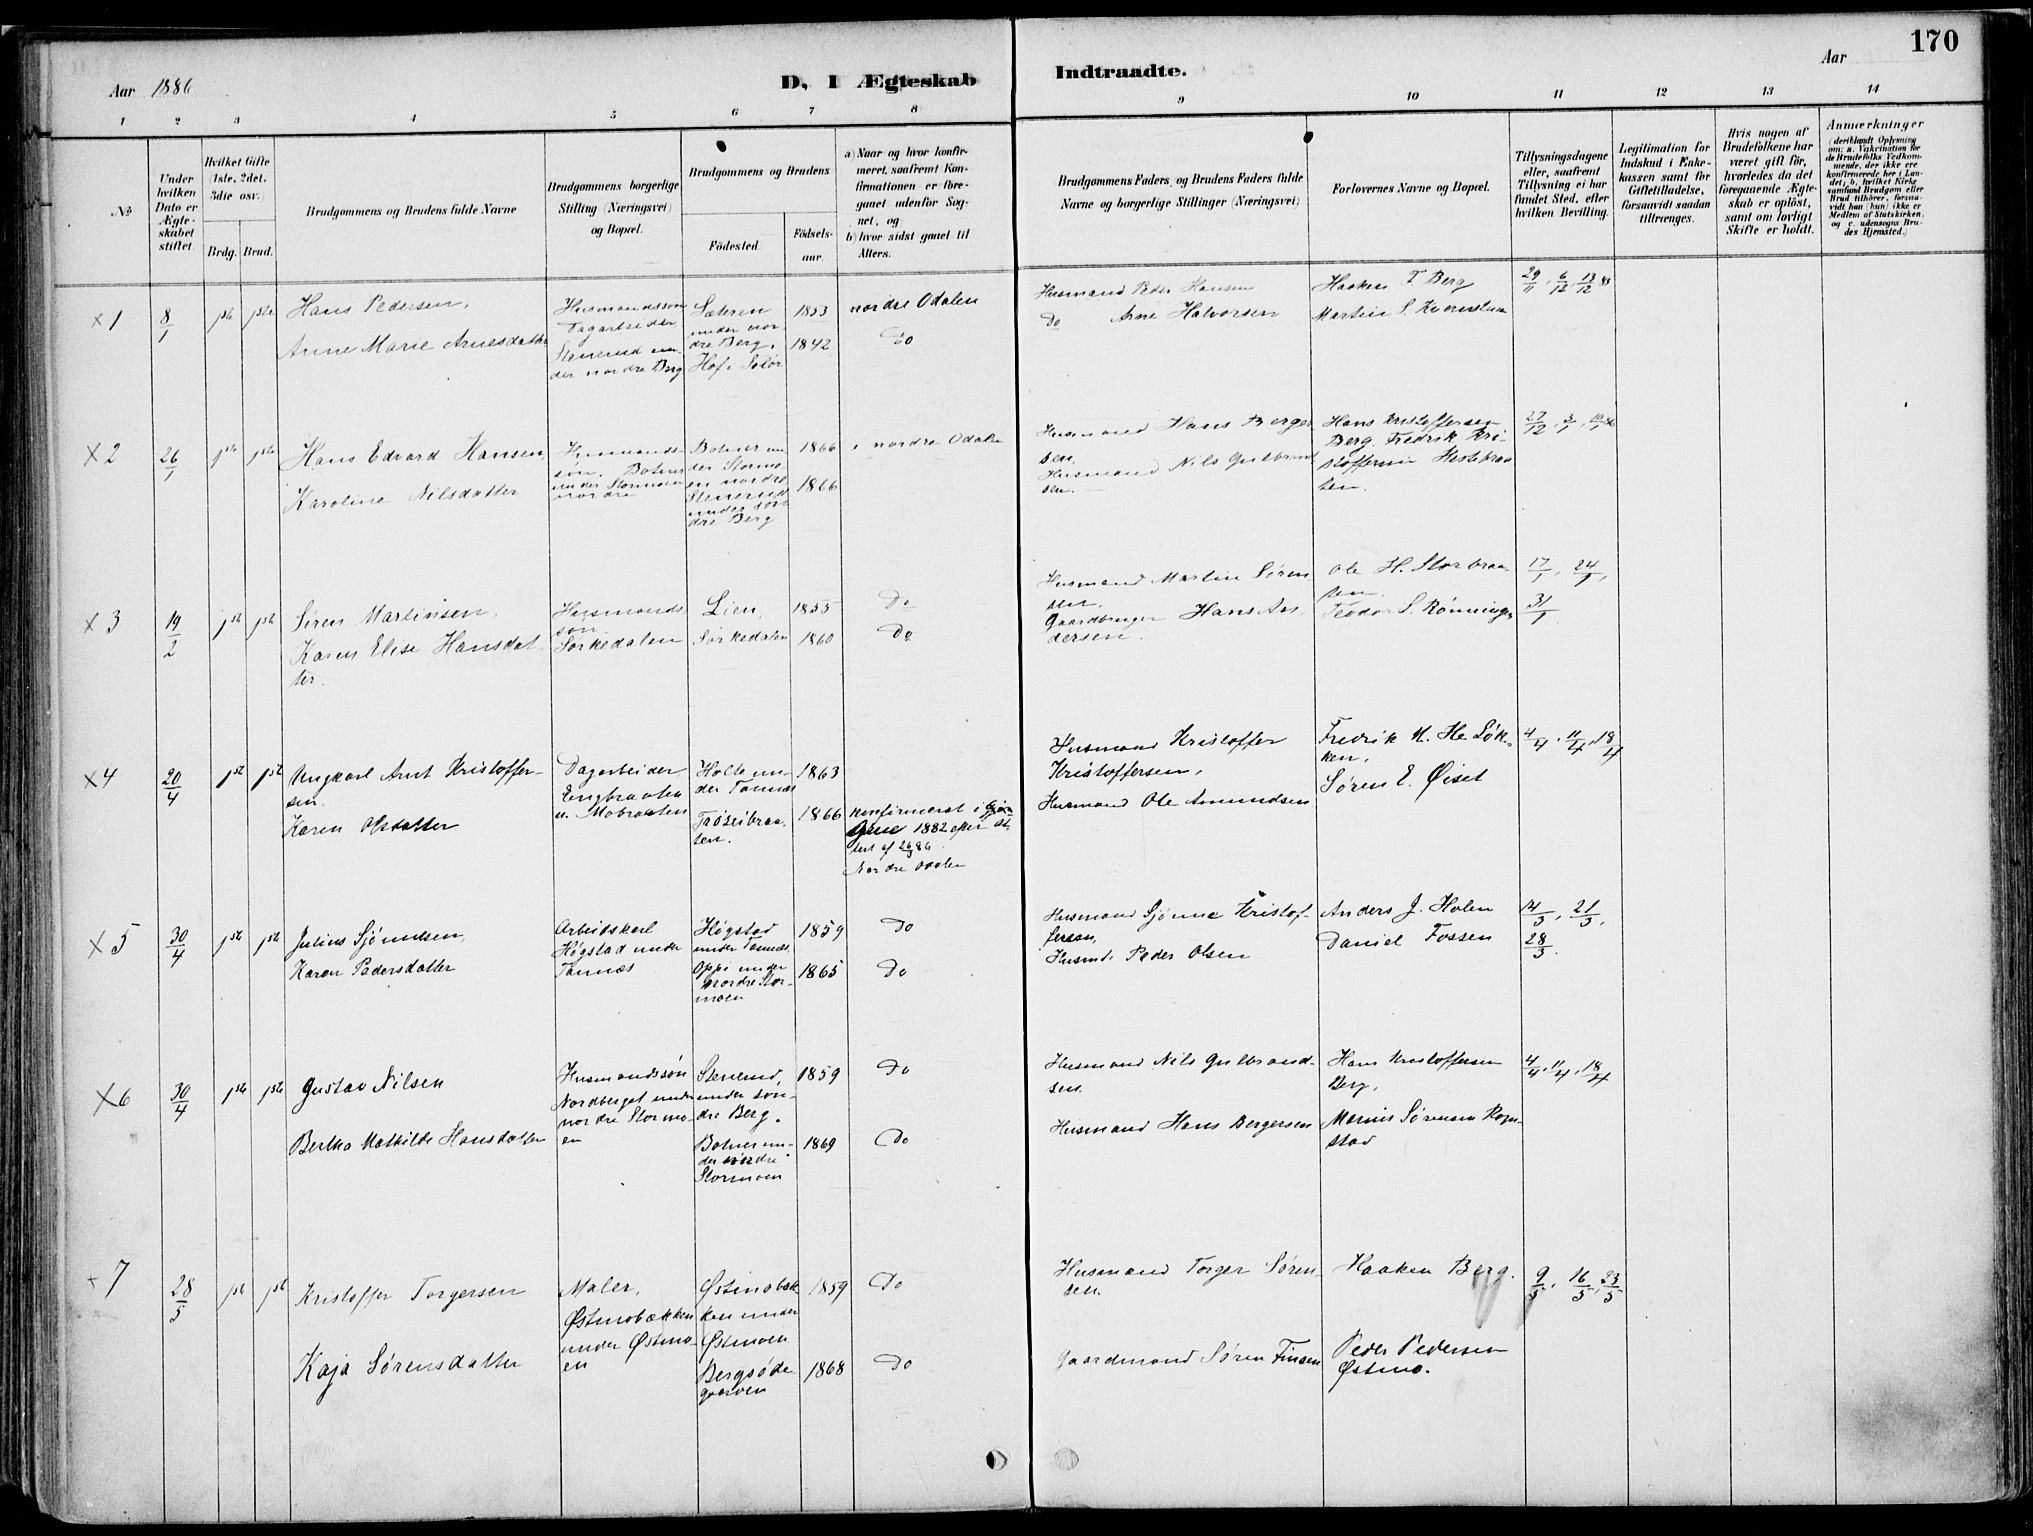 170
Aar 1886
D. I Ægteskab
Indtraadte.
Aar
1 2 3 4 5 6 7 8 9 10 11 12 13 14
No
Under hvilken Dato er Ægteskabet stiftet.
Hvilket Gifte (1ste, 2det, 3die osv.)
Brdg. Brud.
Brudgommens og Brudens fulde Navne
Brudgommens borgerlige Stilling (Næringsvei) og Bopæl.
Brudgommens og Brudens
Födested
Födsels-aar.
a) Naar og hvor konfirmeret, saafremt Konfirmationen er foregaaet udenfor Sognet, og
b) hvor sidst gaaet til Alters.
Brudgommens Faders og Brudens Faders fulde Navne og borgerlige Stillinger (Næringsvei)
Forlovernes Navne og Bopæl.
Tillysningsdagene eller, saafremt Tillysning ei har fundet Sted, efter hvilken Bevilling.
Legitimation for Indskud i Enkekassen samt for Giftetilladelse, forsaavidt saadan tiltrænges.
Hvis nogen af Brudefolkene har været gift før, hvorledes da det foregaaende Ægteskab er oplöst, samt om lovligt Skifte er holdt.
Anmærkninger
(deriblandt Oplysning om: a. Vakcination for de Brudefolks Vedkommende, der ikke ere konfirmerede her i Landet; b. hvilket Kirkesamfund Brudgom eller Brud tilhörer, forsaavidt han (hun) ikke er Medlem af Statskirken, og c. udensogns Brudes Hjemsted.)
x 1
8/1
1ste 1ste
Hans Pedersen,
Anne Marie Arnesdatter
Husmandssøn
Dagarbeider
Stenerud un-
der nordre Berg
Sæteren
under nor-
dre Berg.
Hof i Solør
1853
1842
nordre Odalen
Do
Husmand Peder Hansen
Do Arne Halvorsen
Haaken T Berg
Martin S.
29/11, 6/12, 13/12 85
x 2
26/1
1ste 1ste
Hans Edvard Hansen,
Karoline Nilsdatter
Husmands-
søn. Botner
under Stormoen
nordre
Botner un-
der Stormo-
en nordre
Stenerud
under søn-
dre Berg
1866
1866
nordre Odalen
Husmand Hans Berger-
sen.
Husmand Nils Gulbrand-
sen.
Hans Kristoffersen
Berg. Fredrik Kri-
stoffersen Hestebraa-
ten.
27/12, 3/1, 10/1 86
x 3
19/2
1ste 1ste
Sören Martinsen.
Karen Elise Hansdat-
ter.
Husmands-
søn
Sørkedalen
Lien,
Sørkedalen
1855
1860
Do
Do
Husmand Martin Søren-
sen.
Gaardbruger Hans An-
dersen.
Ole H. Storbraa-
ten.
Teodor S. Rønningen
17/1, 24/1,
31/1
x 4
20/4
1ste 1ste
Ungkarl Arnt Kristoffer-
sen.
Karen Olsdatter
Dagarbeider,
Engbraaten
u. Mobraaten
Holte un-
der Tannæs
Trøseibraa-
ten.
1863
1866
Konfirmeret i
1882 efter At-
test af 26/3 86
Nordre Odalen
Husmand Kristoffer
Kristoffersen,
Husmand Ole Amundsen
Fredrik K. He Løk-
ken,
Søren E. Øiset
4/4, 11/4, 18/4
x 5
30/4
1ste 1ste
Julius Sjønnesen,
Karen Pedersdatter
Arbeidskarl
Høgstad under
Tannæs
Høgstad
under Tannæs,
Oppi under
nordre Stor-
moen
1859
1865
Do
Do
Husmand Sjønne Kristof-
fersen,
Husmd. Peder Olsen
Anders J. Holen
Daniel Fossen
14/3, 21/3,
28/3.
x 6
30/4
1ste 1ste
Gustav Nilsen
Bertha Mathilde Hansdatter
Husmandssøn
Nordberget under
nordre Stormo-
en
Stenerud,
under søn-
dre Berg.
Botner un-
der nordre
Stormoen
1859
1869
Do
Do
Husmand Nils Gulbrand-
sen.
Husmand Hans Bergersen
Hans Kristoffersen
Berg,
Marius Sørensen Rogn-
stad
4/4, 11/4, 18/4
x 7
28/5
1ste 1ste
Kristoffer Torgersen
Kaja Sørensdatter
Maler,
Østmobækken
under Østmo-
en
Østmobæk-
ken under
Østmoen
Bergsøde-
gaarden
1859
1868
Do
Do
Husmand Torger Søren-
sen.
Gaardmand Søren Finsen
Haaken Berg.
Peder Pedersen
Østmo.
9/5, 16/5, 23/5